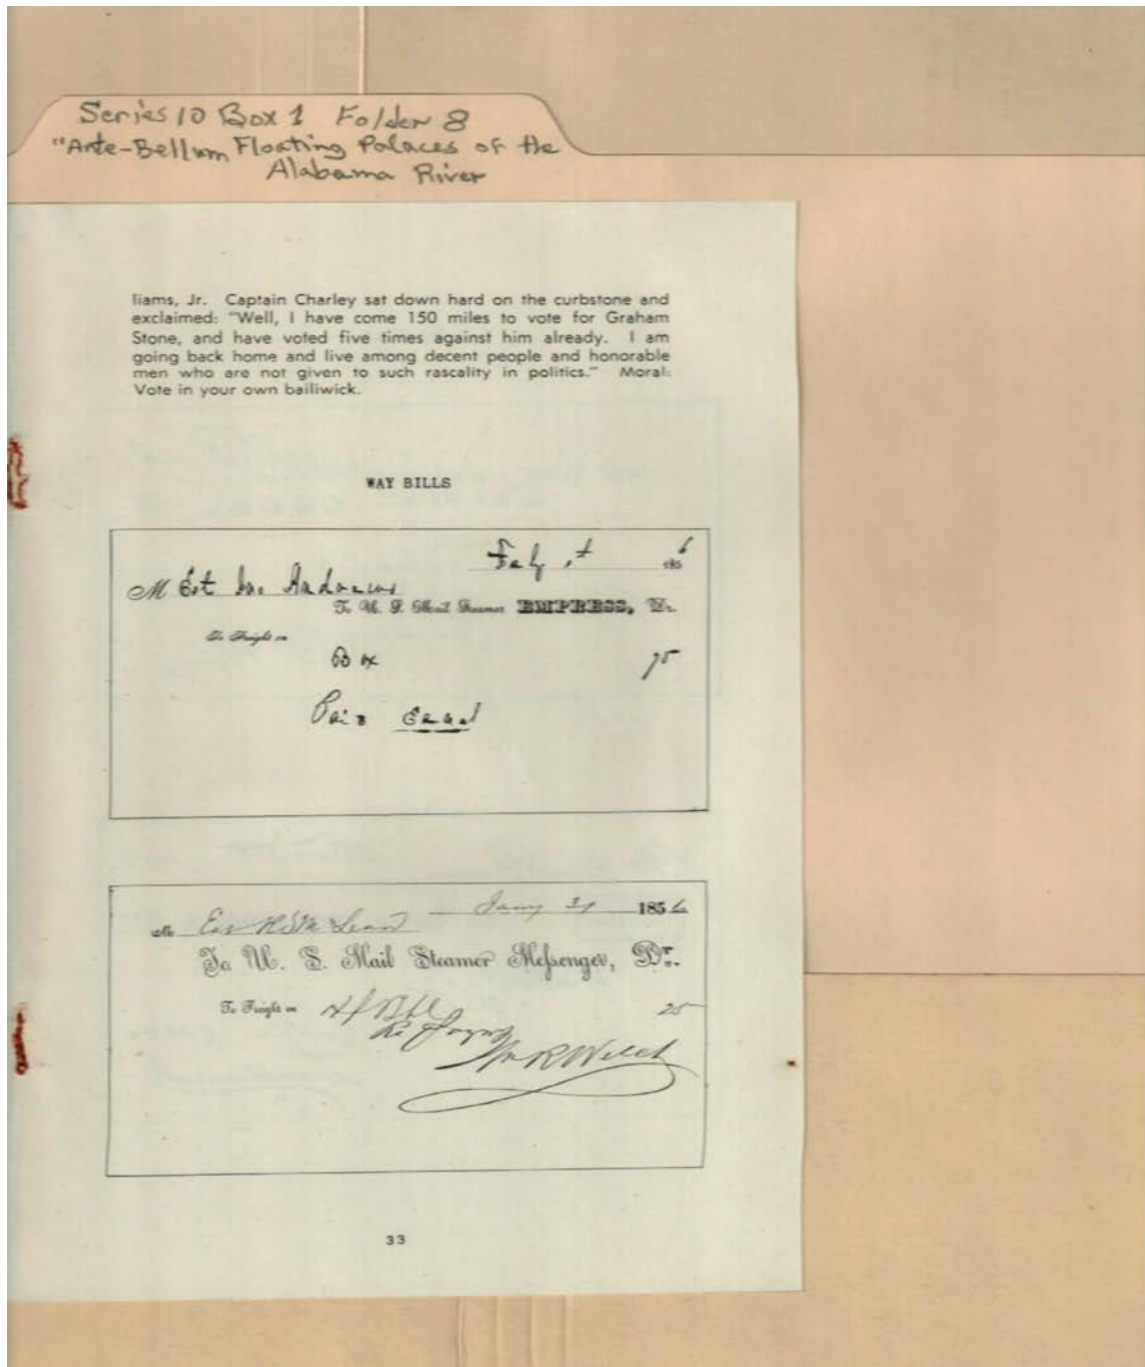 Series 10 Box 1 Folder 8
"Ante-Bellum Floating Palaces of the
Alabama River
liams, Jr. Captain Charley sat down hard on the curbstone and
exclaimed: "Well, I have come 150 miles to vote for Graham
Stone, and have voted five times against him already. I am
going back home and live among decent people and honorable
men who are not given to such rascality in politics." Moral:
Vote in your own bailiwick.
WAY BILLS
1856
M Est Andrews
To U. S. Mail Steamer EMPRESS, Dr.
To Freight on
Box 75
Paid
Jany 31 1856
M
To U. S. Mail Steamer Messenger, Dr.
To Freight on 25
Wm R Welch
33